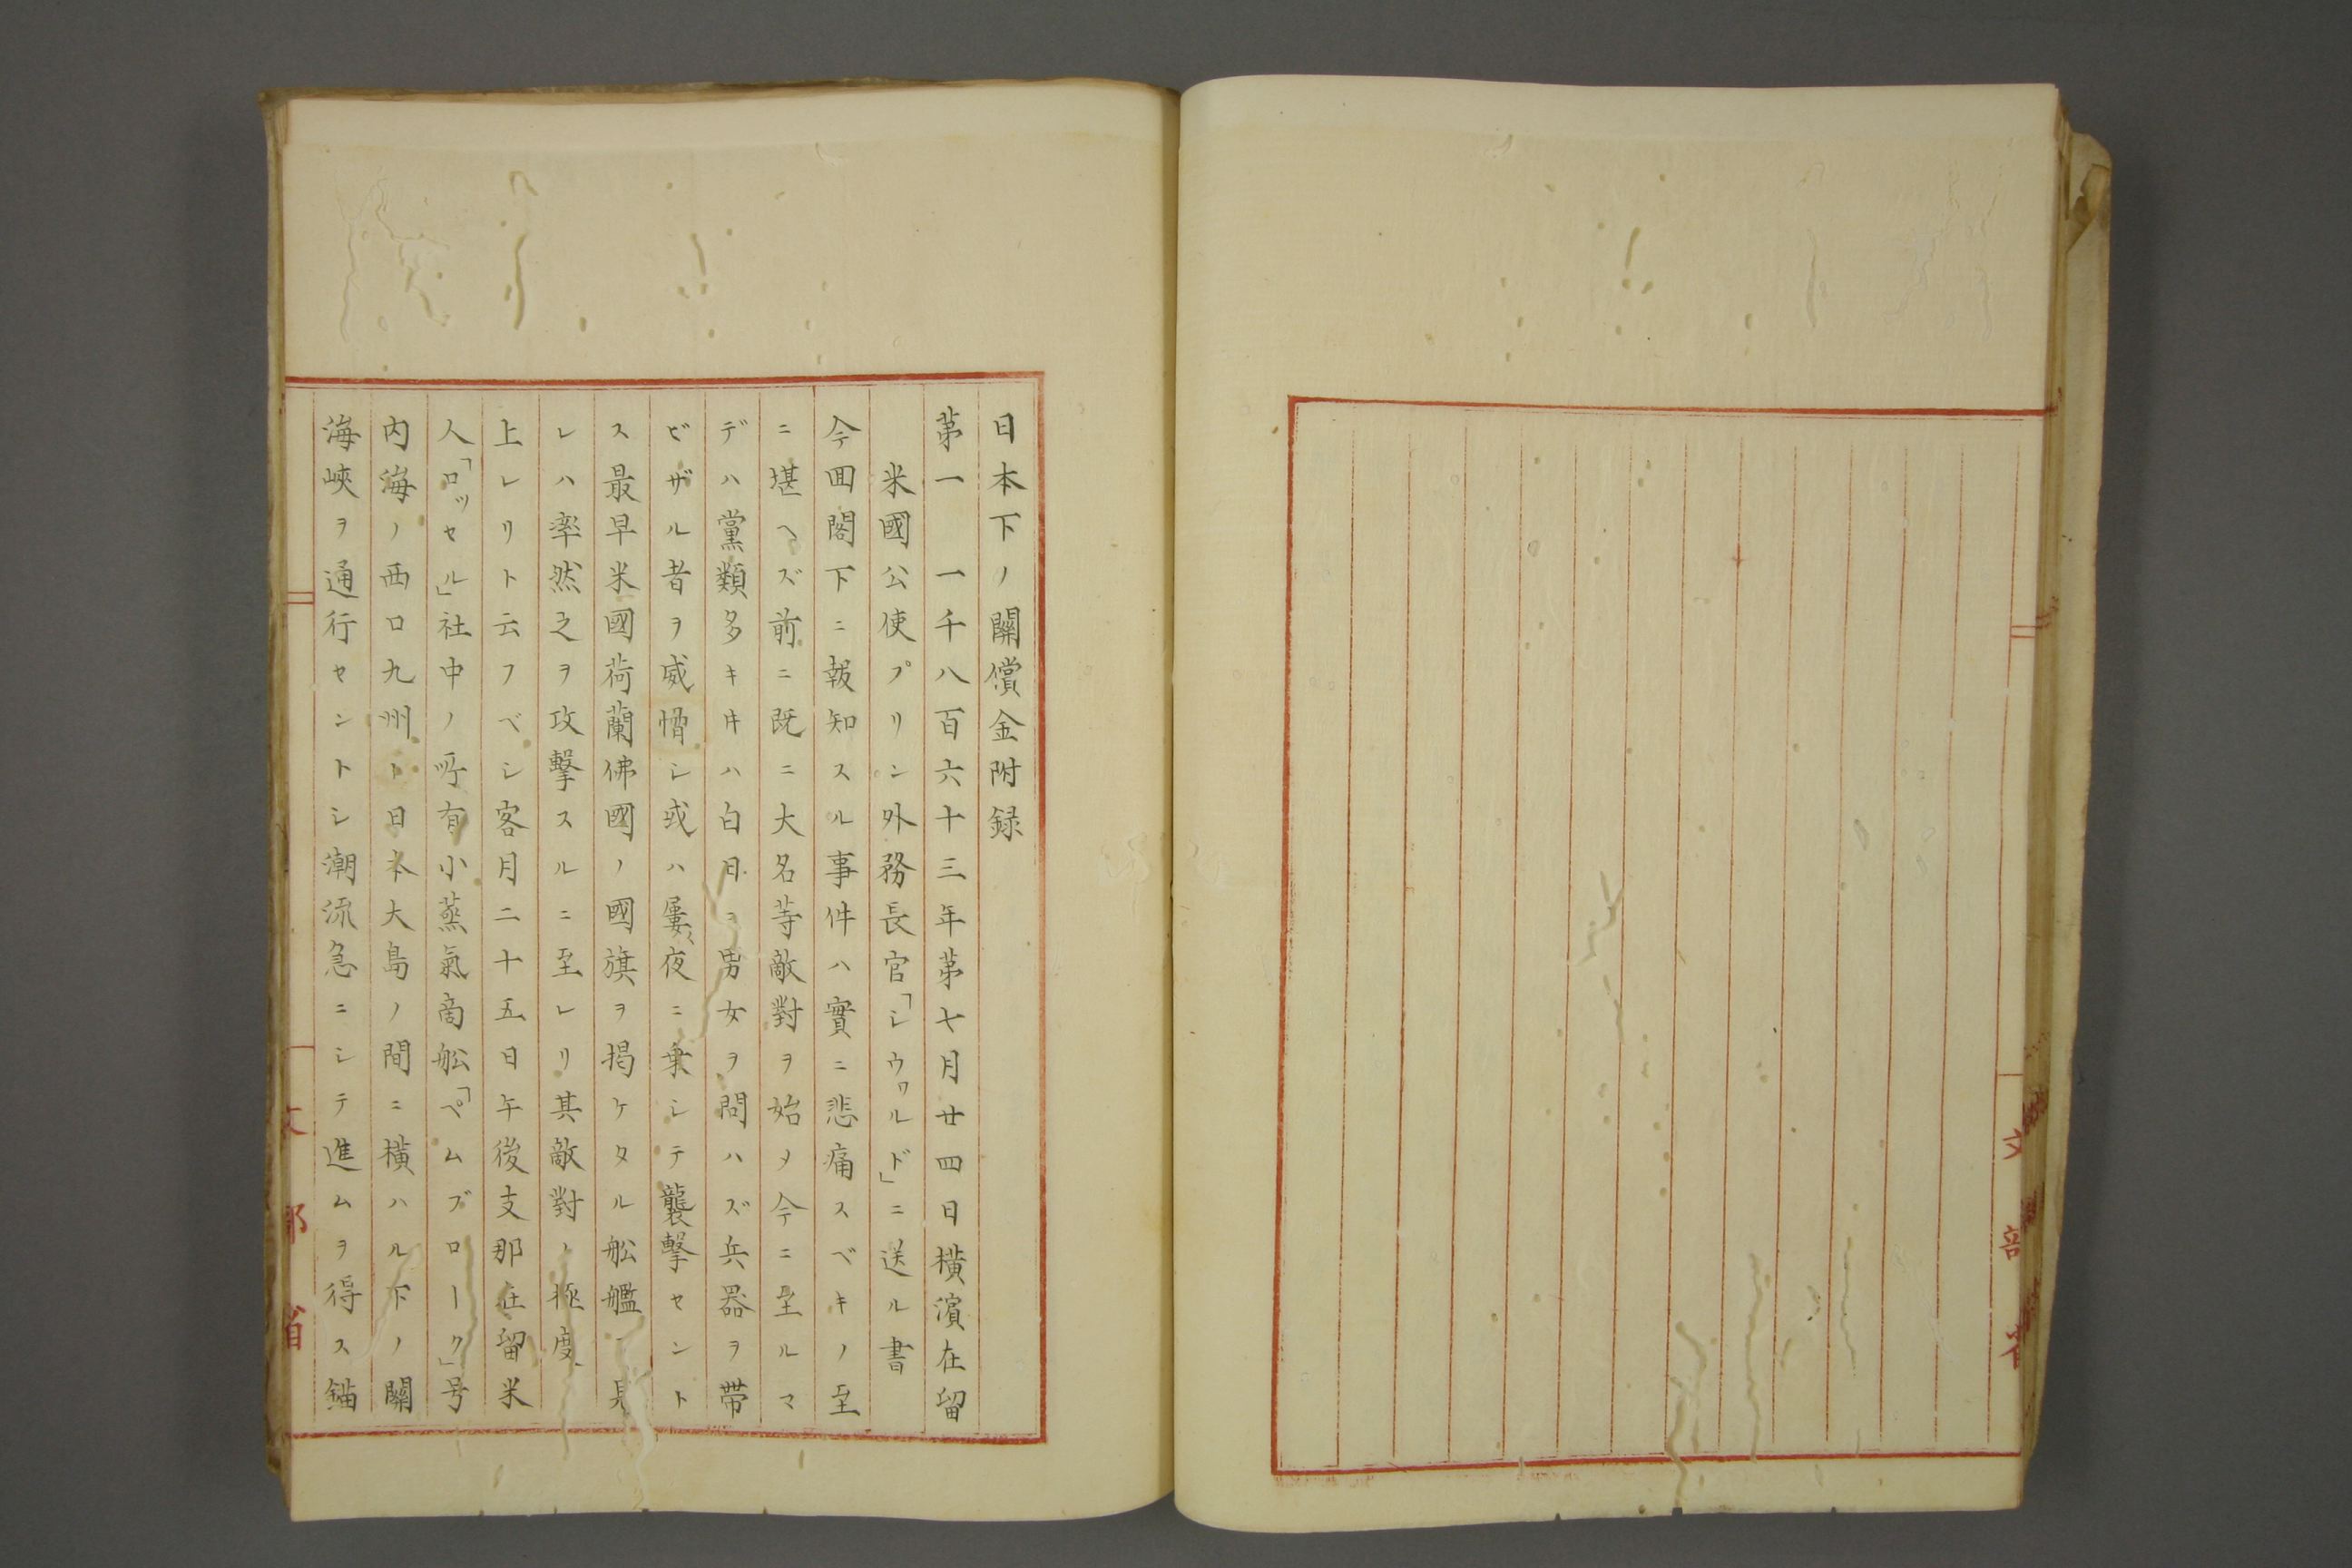 日本下ノ關償金附録
第一 一千八百六十三年第七月廿四日横濱在留
米國公使プリン外務長官「シウワルド」ニ送ル書
今回閣下ニ報知スル事件ハ實ニ悲痛スベキノ至
ニ堪ヘズ前ニ既ニ大名等敵對ヲ始メ今ニ至ルマ
デハ黨類多キ井ハ白日ニ男女ヲ問ハズ兵器ヲ帶
ビザル者ヲ威愶シ或ハ屢〻夜ニ乗シテ襲撃セント
ス最早米國荷蘭佛國ノ國旗ヲ掲ケタル舩艦ニ
レハ率然之ヲ攻撃スルニ至レリ其敵對ノ極度
上レリト云フベシ客月二十五日午後支那在留米
人「ロッセル」社中ノ所有小蒸氣商舩「ペムブローク」号
内海ノ西口九州ト日本大島ノ間ニ横ハル下ノ關
海峽ヲ通行セントシ潮流急ニシテ進ムヲ得ス錨
文部省
文部省